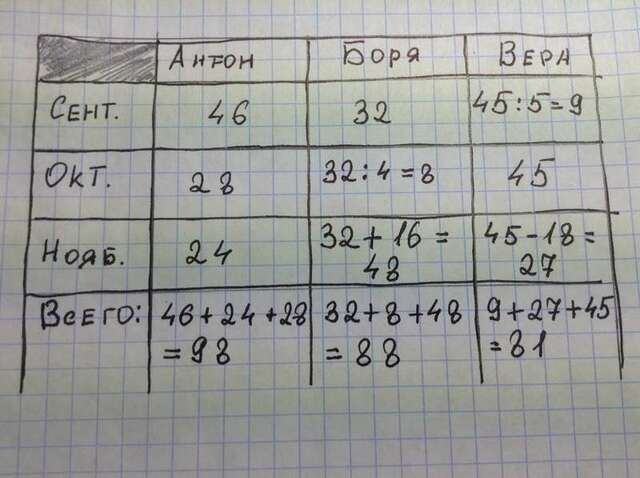 Антон Боря Вера
Сент. 46 32 45:5=9
Окт. 28 32:4=8 45
Нояб. 24 32+16= 45-18=
48 27
Всего: 46+24+28 32+8+48 9+27+45
=98 =88 =81